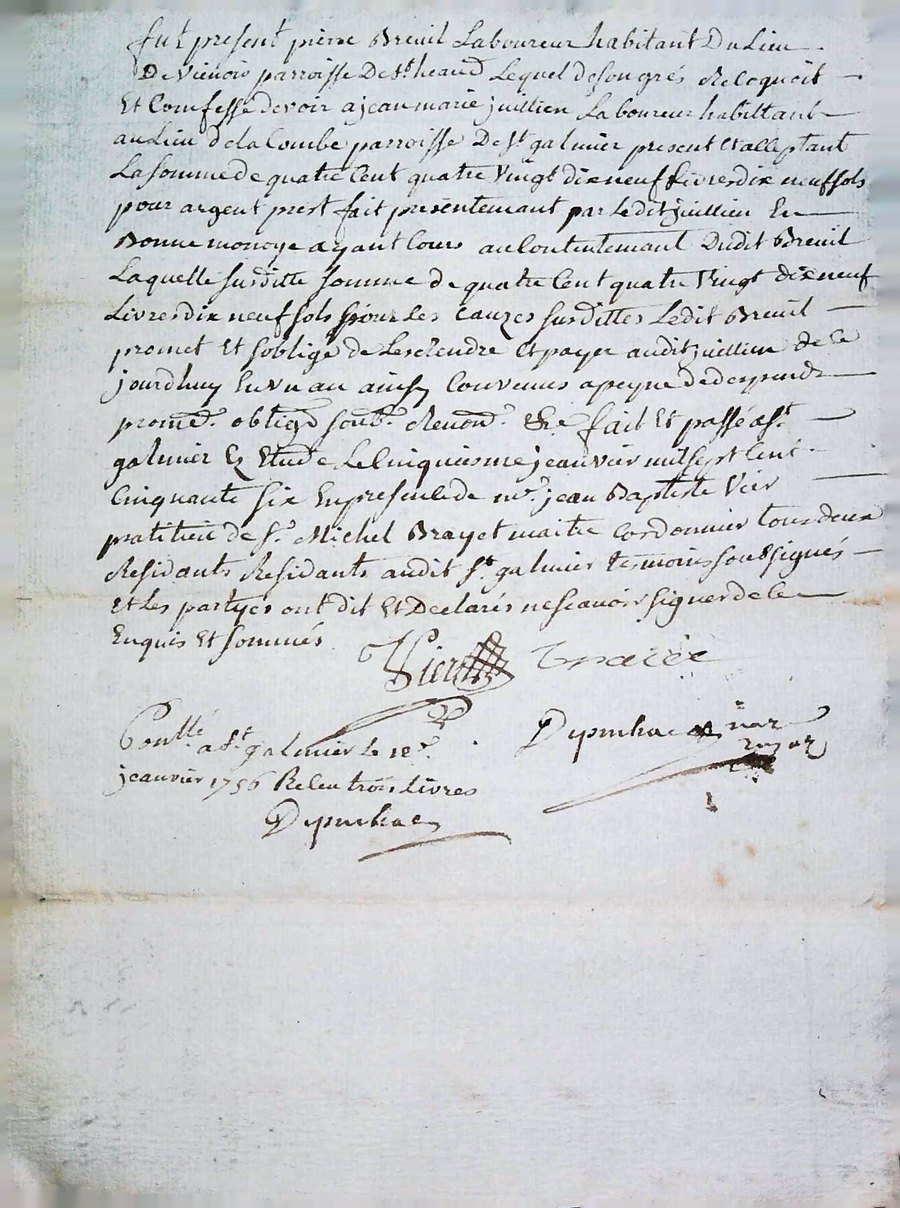 fut present pierre Breuil Laboureur habitant Du Lieu
De vienois parroisse De St heand Lequel de son grés Recognoit
Et Comfesse devoir a jean marie juillien Laboureur habittant
au Lieu de la Combe parroisse De St galmier present Et acceptant
La somme de quatre Cent quatre Vingt dix neuf Livres dix neuf sols
pour argent prest fait presentemant par Ledit juillien En
Bonne monoye ayant Cours au Contentemant Dudit Breuil
Laquelle susditte somme de quatre Cent quatre Vingt dix neuf
Livres dix neuf sols pour les cauzes susdittes Ledit Breuil
promet Et soblige de Les Rendre Et payer audit juillien de Ce
jourdhuy En un an ainsy Convenus a peyne de despends
promed. oblige soub. Renond. &c fait Et passé a St
galmier Es Etude Le Cinquiesme jeanvier mil sept Cent
Cinquante six En presence de mr. jean Baptiste Vier
pratitien de Sr Michel Brayet maitre Cordonnier tous deux
Residants Residants audit St galmier tesmoins soubsignés
Et Les partyes ont dit Et Declarés ne scavoir signer de Ce
Enquis Et sommés
Vier
Conllé a St galmier Le 12e
jeanvier 1756 Receu trois Livres